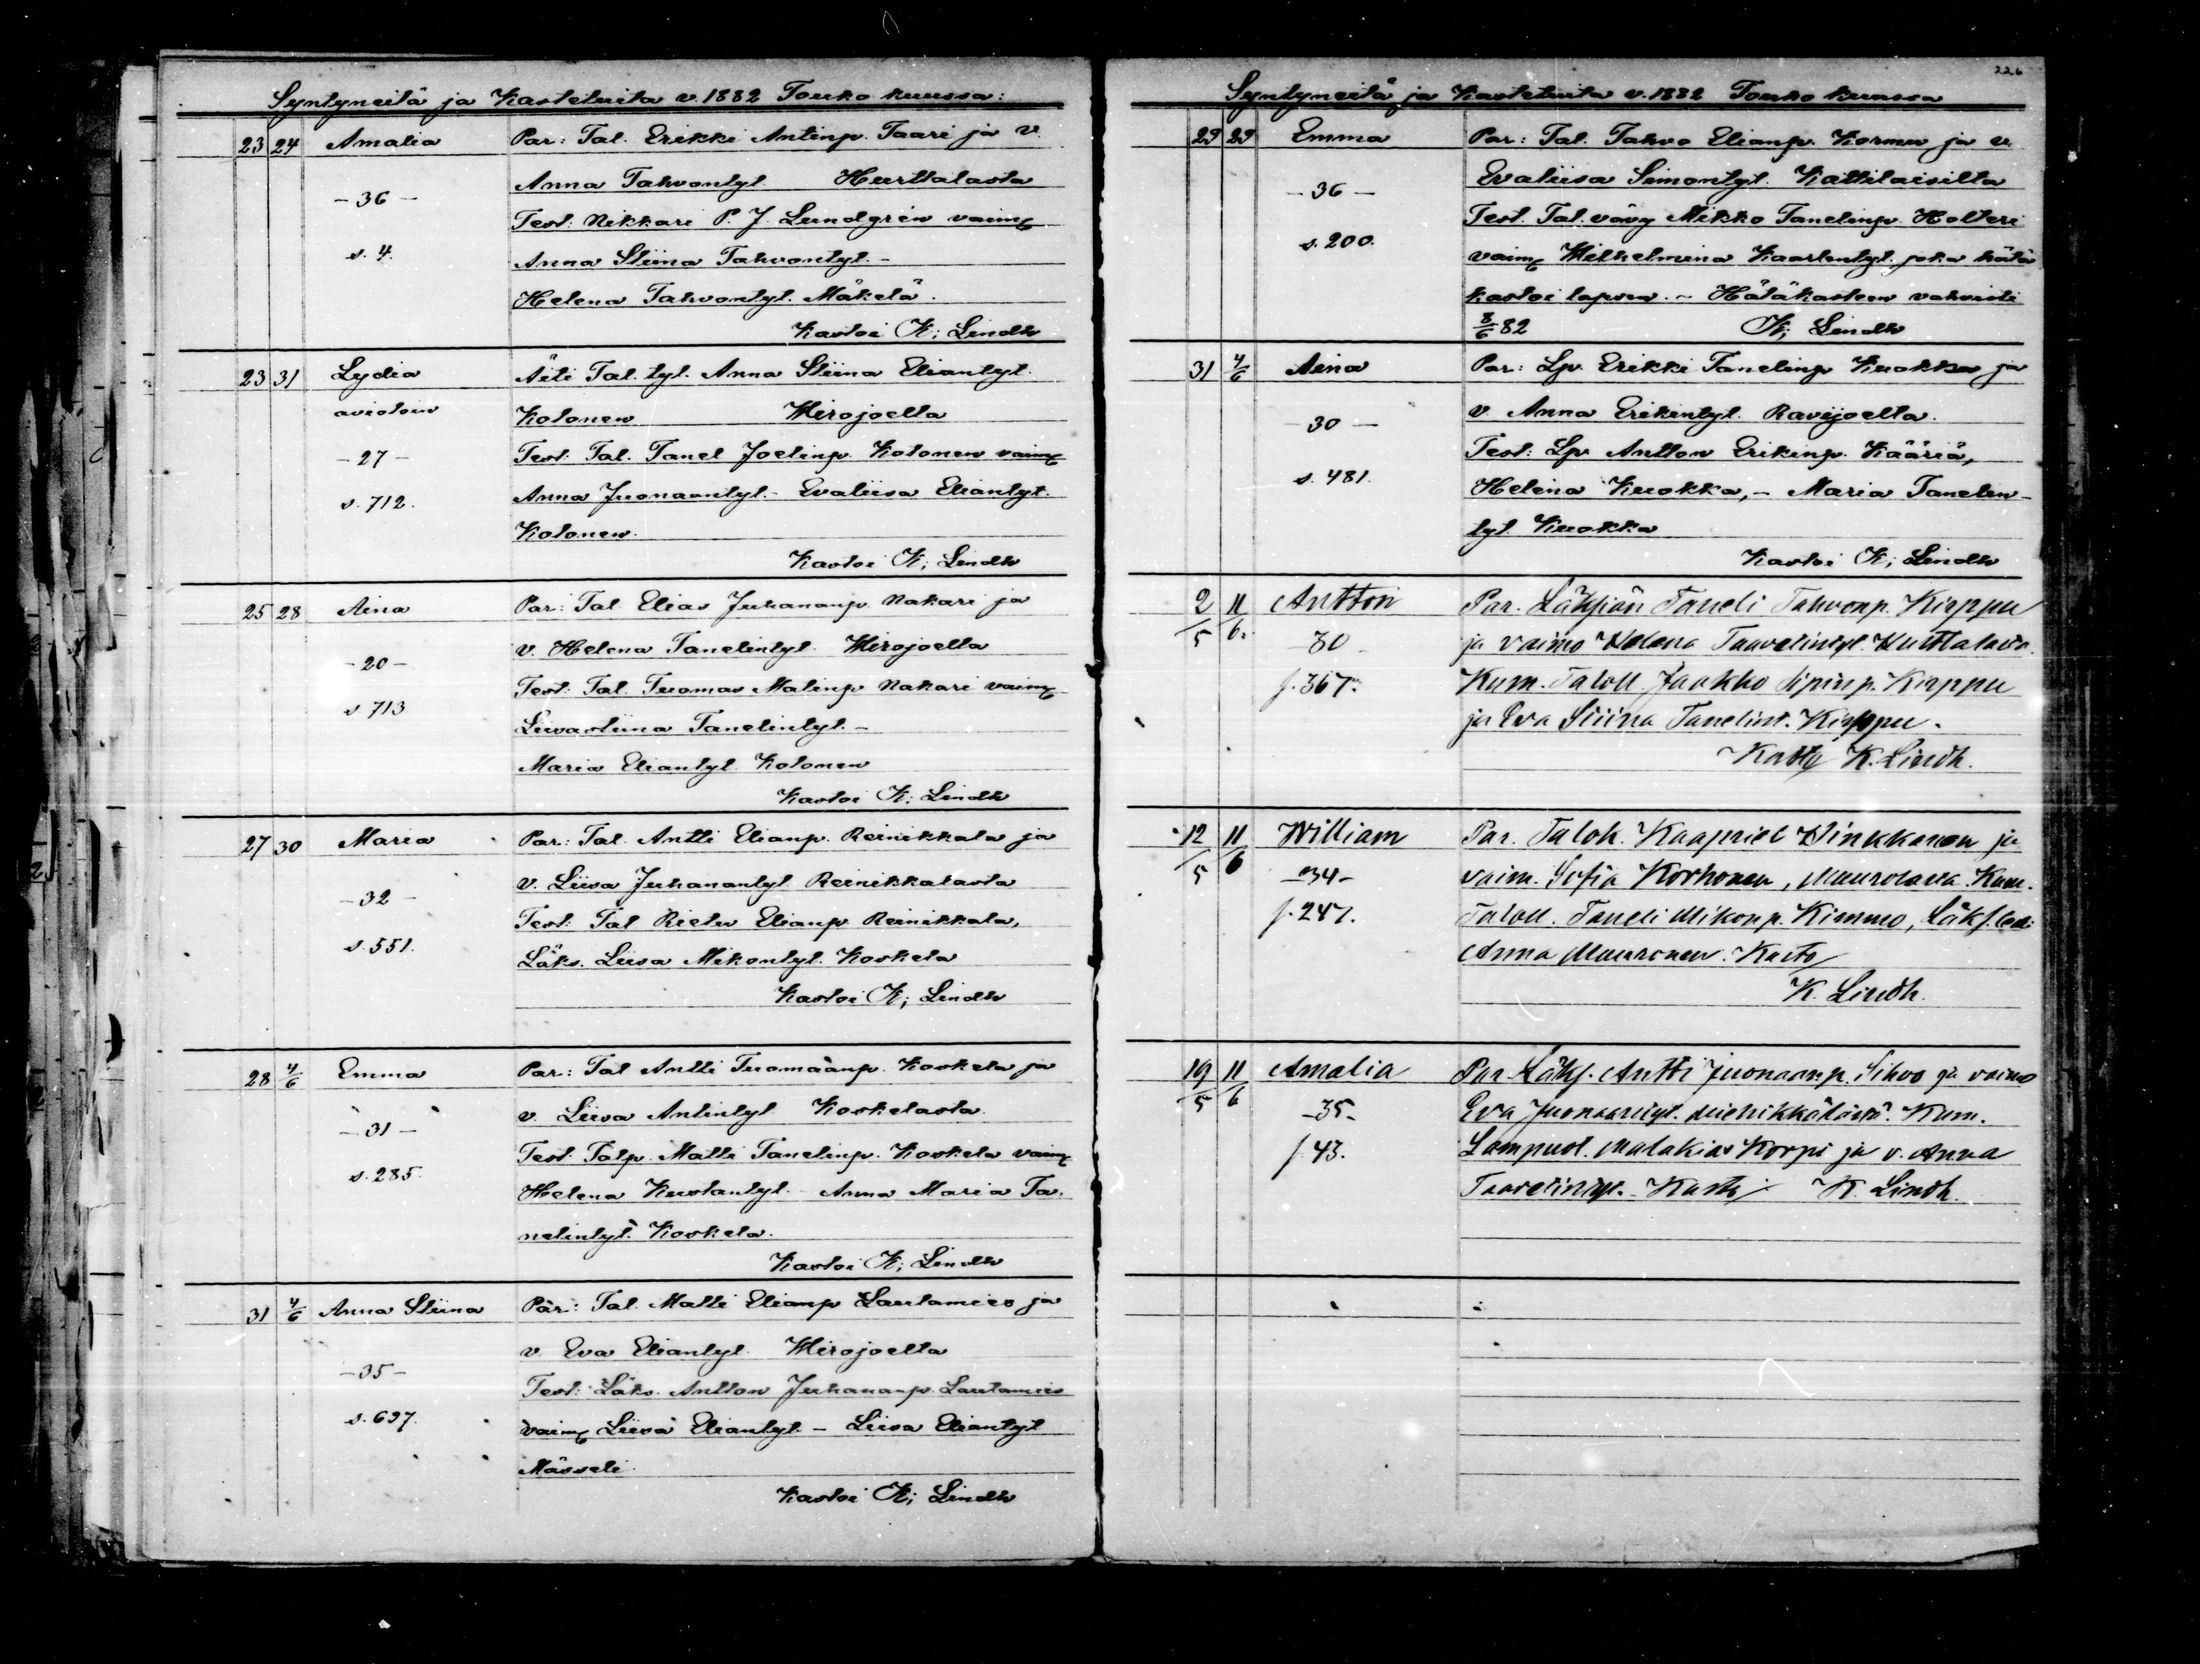 Syntyneitä ja Kastetuita v. 1882 Touko kuussa:
23 24 Amalia Par: Tal. Erikki Antinp. Taari ja v.
Anna Tahvontyt. Hurttalasta
- 36 - Test: Nikkari P. J. Lundgrén vaimo
s. 4. Anna Stiina Tahvontyt. -
Helena Tahvontyt. Mäkelä.
Kastoi K; Lindh
23 31 Lydia Äiti Tal. tyt. Anna Stiina Eliantyt.
aviotoin Kotonen Wirojoelta
- 27 - Test: Tal. Tanel Joelinp. Kotonen vaimo
s. 712. Anna Juonaantyt. - Evaliisa Eliantyt.
Kotonen.
Kastoi K; Lindh
25 28 Aina Par: Tal. Elias Juhananp. Nakari ja
v. Helena Tanelintyt. Wirojoelta
- 20 - Test: Tal. Tuomas Matinp. Nakari vaimo
s. 713 Liivastiina Tanelintyt. -
Maria Eliantyt. Kotonen
Kastoi K; Lindh
27 30 Maria Par: Tal. Antti Elianp. Reinikkala ja
v. Liisa Juhanantyt. Reinikkalasta
- 32 - Test: Tal. Rietu Elianp. Reinikkala,
s. 551. Läks. Liisa Mikontyt. Koskela
Kastoi K; Lindh
28 4/6 Emma Par: Tal. Antti Tuomaanp. Koskela ja
v. Liisa Antintyt. Koskelasta.
- 31 - Test: Talp. Matti Tanelinp. Koskela vaimo
s. 285. Helena Kustantyt. - Anna Maria Ta-
nelintyt. Koskela.
Kastoi K; Lindh
31 4/6 Anna Stiina Par: Tal. Matti Elianp. Lautamies ja
v. Eva Eliantyt. Wirojoelta
- 35 - Test: Läks. Antton Juhananp. Lautamies
s. 697. vaimo Liisa Eliantyt. - Liisa Eliantyt
Mässeli.
Kastoi K; Lindh
226
Syntyneitä ja Kastetuita v. 1882 Touko kuussa
29 29 Emma Par: Tal. Tahvo Elianp. Kormu ja v.
Evaliisa Simontyt. Kattilaisilta
- 36 - Test. Tal. vävy Mikko Tanelinp. Holteri
s. 200. vaimo Wilhelmina Kaarlontyt. joka hätä
kastoi lapsen. - Hätäkasteen vahvisti
8/6 82 K; Lindh
31 4/6 Aina Par: Lp. Erikki Tanelinp. Kuokka ja
v. Anna Erikintyt. Ravijoelta.
- 30 - Test: Lp. Antton Erikinp. Kääriä,
s. 481. Helena Kuokka, - Maria Tanelin-
tyt. Kuokka
Kastoi K; Lindh
2/5 11/6. Antton Par. Läksiän Taneli Tahvonp. Kirppu
- 30 - ja vaimo Helena Taavetintyt.
s. 367. Kum. Taloll. Jaakko Sipinp. Kirppu
ja Eva Stiina Tanelint. Kirppu.
K. Lindh.
12/5 11/6 William Par. Taloh. Kaapriel Hinkkanen ja
- 34 - vaim. Sofia Korhonen, Kum.
s. 247. Taloll. Taneli Mikonp. Kimmo,
Anna Muuronen. Kasto
K. Lindh.
19/5 11/6 Amalia Par. Läks. Antti Juonaanp. Sihvo ja vaimo
- 35 - Eva Juonaantyt. Miehikkälästä. Kum.
s. 43. Lampuot. Malakias Korpi ja v. Anna
Taavetintyt. Kasto K. Lindh.